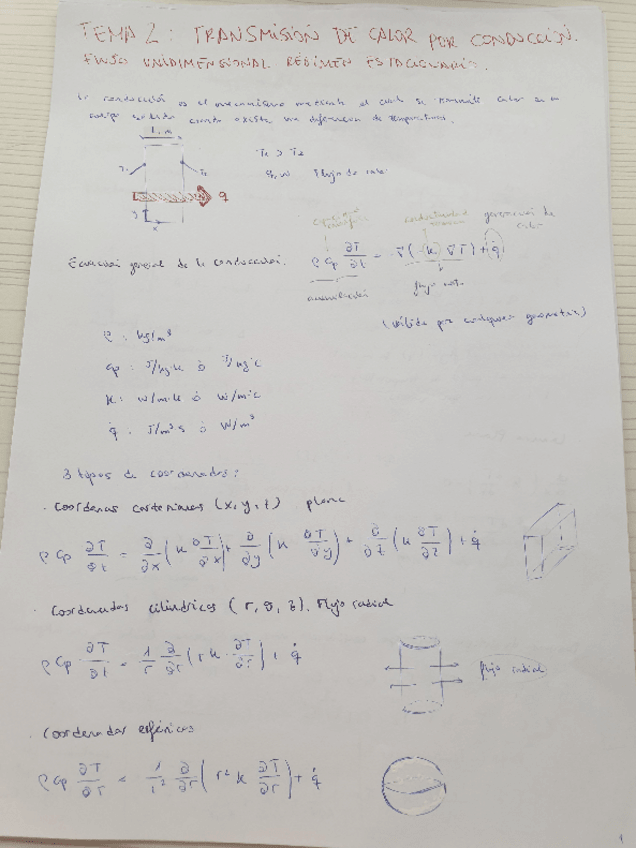 TEMA 2: TRANSMISIÓN DE CALOR POR CONDUCCIÓN.
FLUJO UNIDIMENSIONAL RÉGIMEN ESTACIONARIO.
La conducción es el mecanismo mediante el cual se transmite calor en un
cuerpo sólido cuando existe una diferencia de temperaturas.
T1 > T2
q, W Flujo de calor
T1 T2
q
y
x
generación de calor
Ecuación general de la conducción. ρ Cp ∂T/∂t = -∇(-k ∇T) + q̇
acumulación flujo neto
(válida para cualquier geometría)
ρ: kg/m³
Cp: J/kg·K ó J/kg·C
K: W/m·K ó W/m·C
q̇: J/m³s ó W/m³
3 tipos de coordenadas:
· Coordenas cartesianas (x, y, z) plana
ρ Cp ∂T/∂t = ∂/∂x (K ∂T/∂x) + ∂/∂y (K ∂T/∂y) + ∂/∂z (K ∂T/∂z) + q̇
· Coordenadas cilíndricas (r, θ, z). Flujo radial
ρ Cp · ∂T/∂t = 1/r ∂/∂r (r K · ∂T/∂r) + q̇
flujo radial
· Coordenadas esféricas
ρ Cp ∂T/∂τ = 1/r² ∂/∂r (r² K ∂T/∂r) + q̇
1